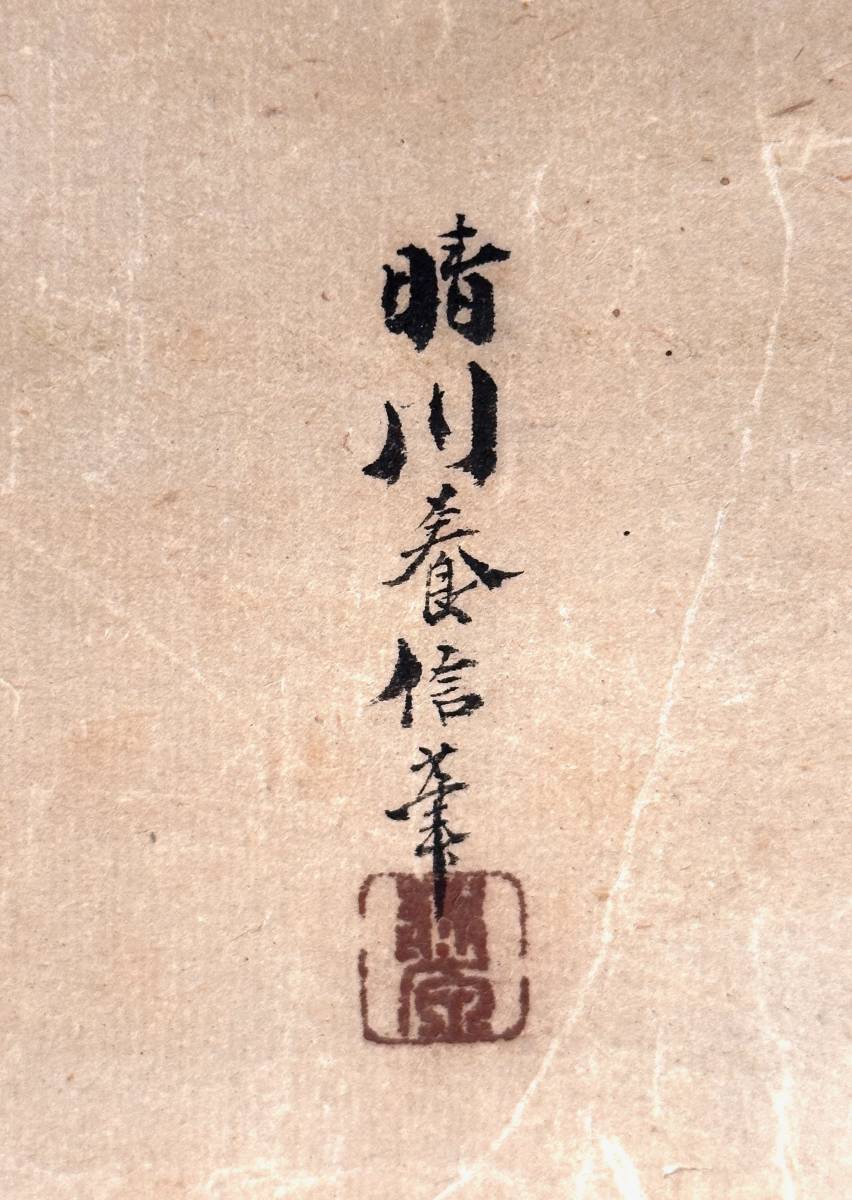 晴川養信筆